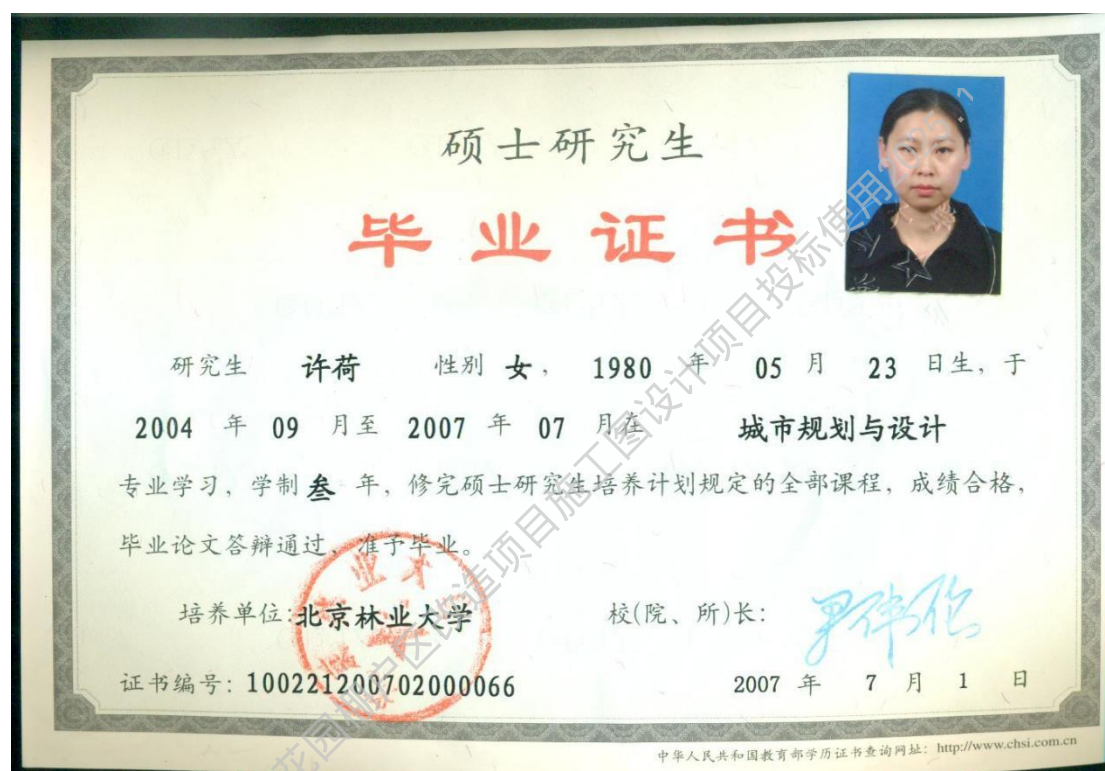 硕士研究生
毕业证书
研究生 许荷 性别 女, 1980 年 05 月 23 日生, 于
2004 年 09 月至 2007 年 07 月在 城市规划与设计
专业学习, 学制 叁 年, 修完硕士研究生培养计划规定的全部课程, 成绩合格,
毕业论文答辩通过, 准予毕业。
培养单位:北京林业大学 校(院、所)长: 尹伟伦
证书编号: 100221200702000066 2007 年 7 月 1 日
中华人民共和国教育部学历证书查询网址: http://www.chsi.com.cn
花园棚户区改造项目施工图设计项目投标使用